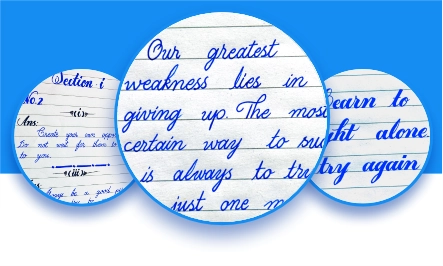 Section i
No.2
«(i)»
Ans:
Create your own oppor
Do not wait for them to
to you.
«(iii)»
always be a good
Our greatest
weakness lies in
giving up. The most
certain way to suc
is always to try
just one m
Learn to
ght alone
try again